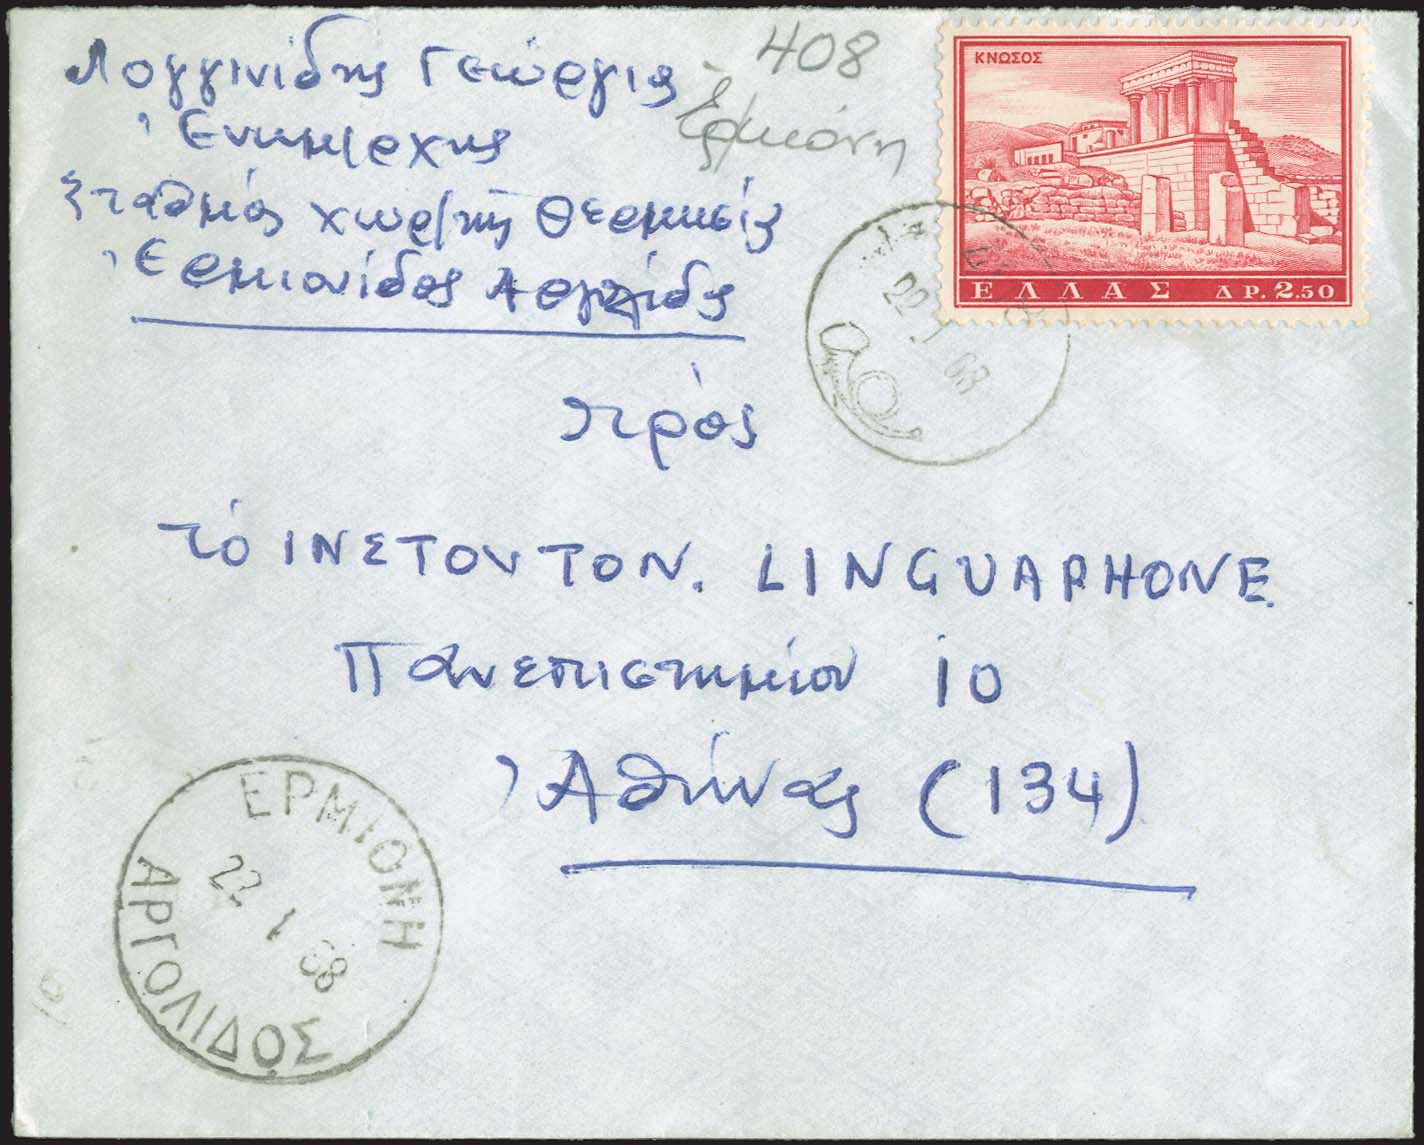 Λογγινίδης Γεώργιος
Ἐνωμ/ρχης
Σταθμός χωρ/κῆς Θερμησίας
Ἐρμιονίδος Ἀργολίδος
408
Ἑρμιόνη
ΚΝΩΣΟΣ
ΕΛΛΑΣ ΔΡ. 2.50
22 1 68
πρός
τό ΙΝΣΤΟΥΤΟΝ. LINGUAPHONE
Πανεπιστημίου 10
Ἀθήνας (134)
ΕΡΜΙΟΝΗ
22 1 68
ΑΡΓΟΛΙΔΟΣ